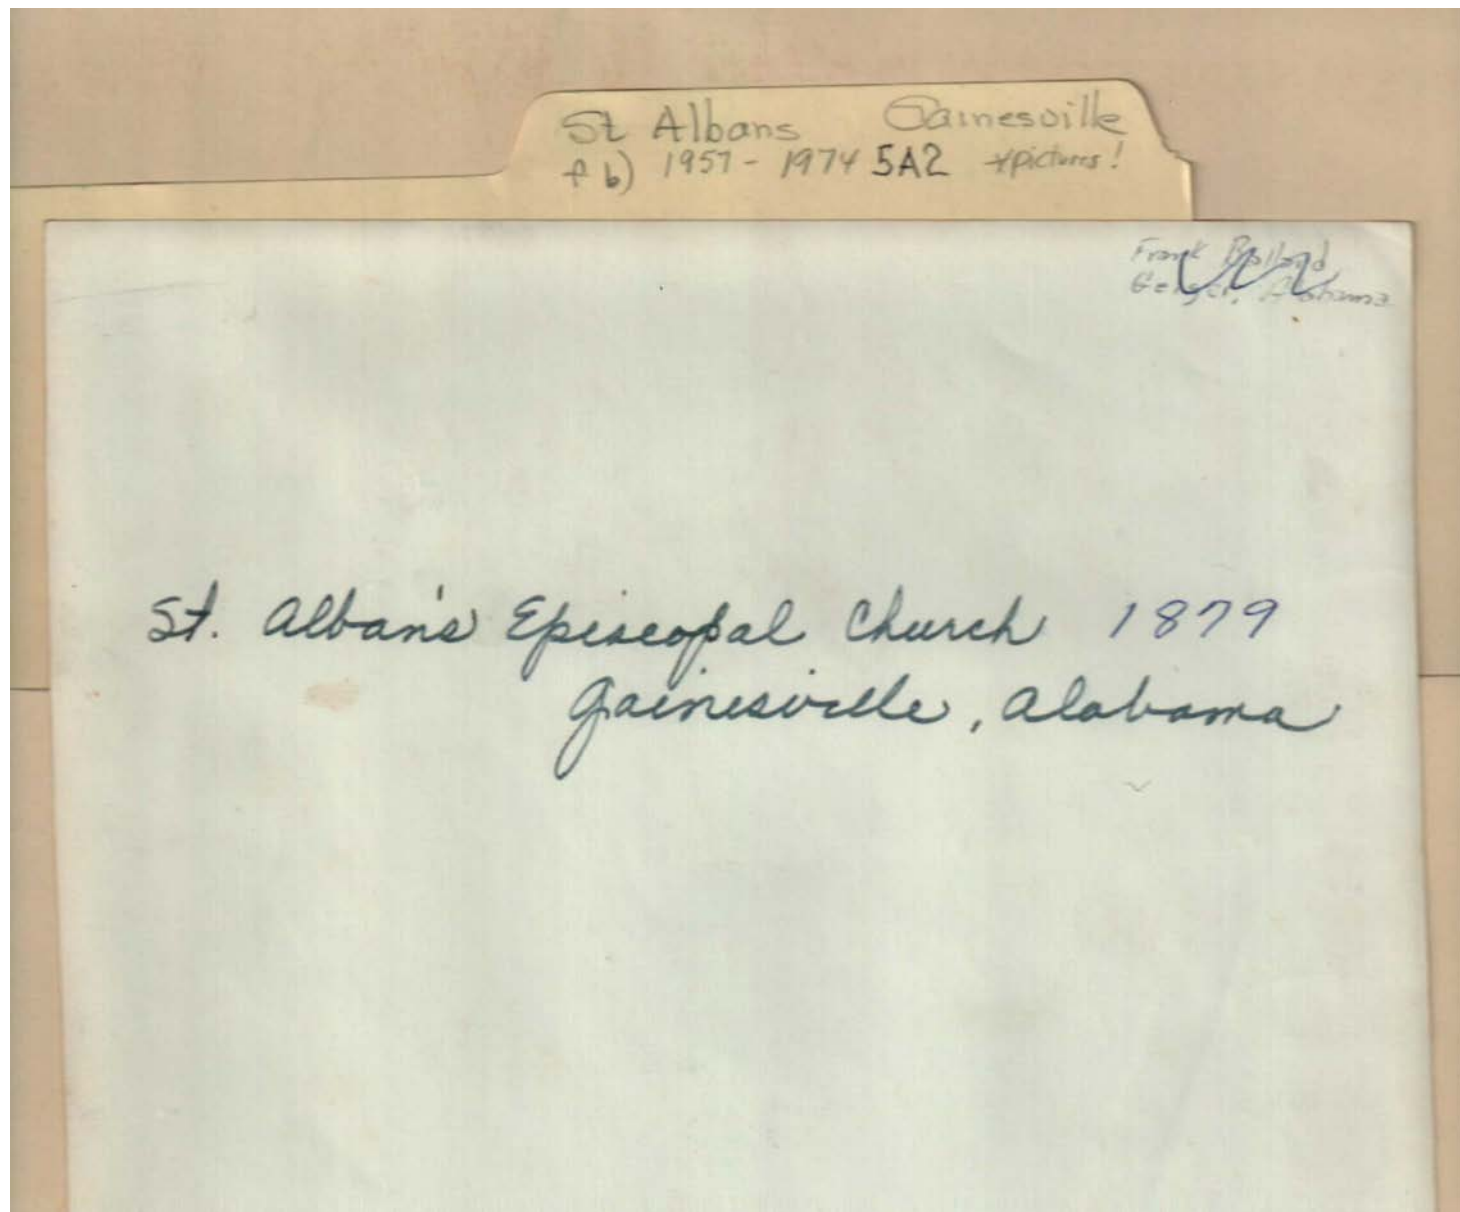 St Albans Gainesville
f b) 1957 - 1974 5A2 *pictures!
Frank Bolland
Geiger, Alabama
St. Alban's Episcopal Church 1879
Gainesville, Alabama